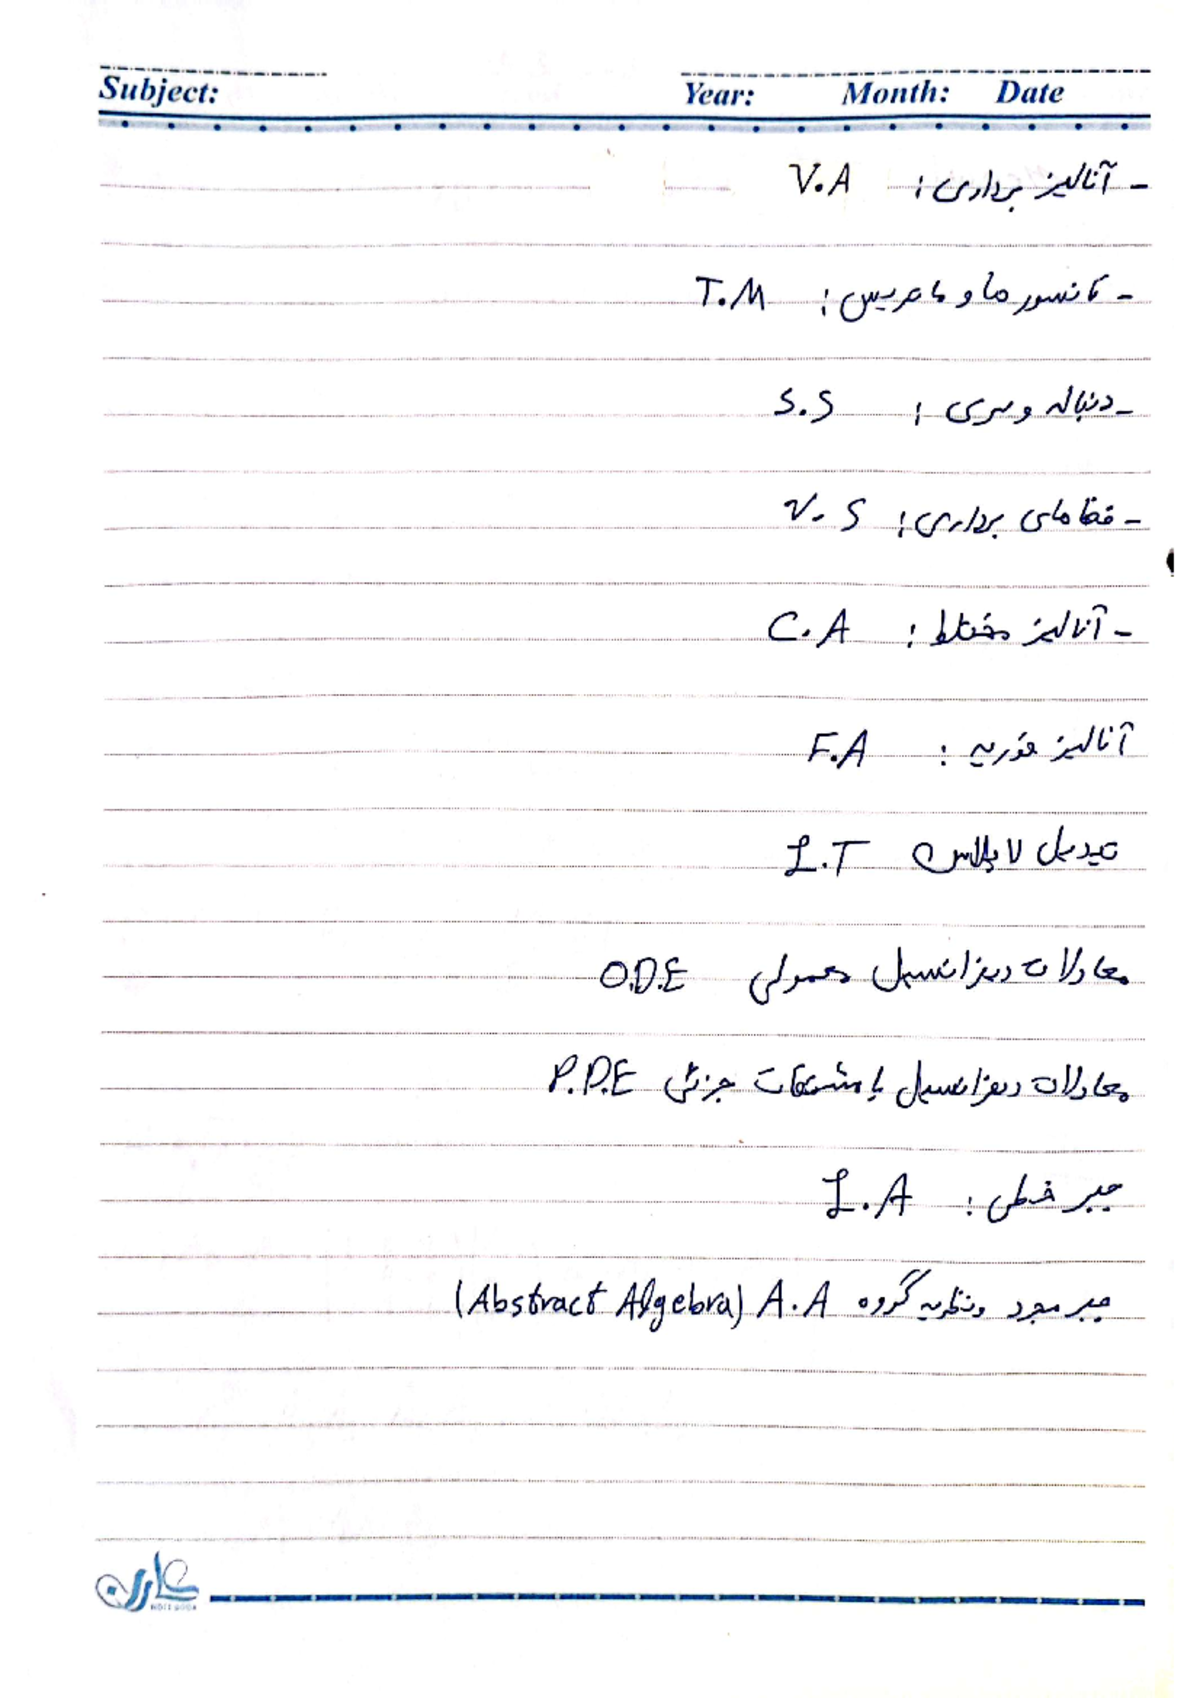 Subject: Year: Month: Date
- آنالیز برداری : V.A
- تانسورها و ماتریس : T.M
- دنباله و سری : S.S
- فضاهای برداری : V.S
- آنالیز مختلط : C.A
آنالیز فوریه : F.A
تبدیل لاپلاس L.T
معادلات دیفرانسیل معمولی O.D.E
معادلات دیفرانسیل با مشتقات جزئی P.D.E
جبر خطی : L.A
جبر مجرد و نظریه گروه A.A (Abstract Algebra)
NOTE BOOK